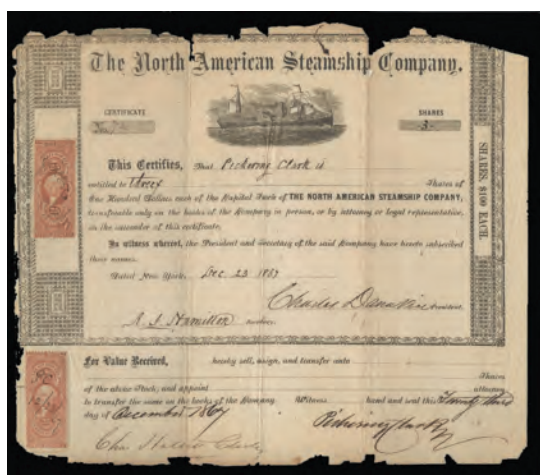 The North American Steamship Company.
CERTIFICATE
SHARES
3
This Certifies, That Pickering Clark is
entitled to three Shares of
One Hundred Dollars each of the Capital Stock of THE NORTH AMERICAN STEAMSHIP COMPANY;
transferable only on the books of the Company in person, or by attorney or legal representative,
on the surrender of this certificate.
In witness whereof, the President and Secretary of the said Company have hereto subscribed
their names.
Dated New York, Dec 23 1867
Charles Dana President.
SHARES $100 EACH.
For Value Received, hereby sell, assign, and transfer unto
Shares
of the above Stock, and appoint attorney
to transfer the same on the books of the Company Witness hand and seal this Twenty third
day of December 1867
Pickering Clark